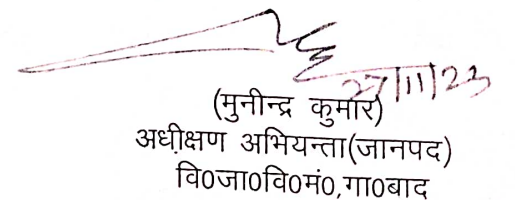 27/11/23
(मुनीन्द्र कुमार)
अधीक्षण अभियन्ता(जानपद)
वि0जा0वि0मं0,गा0बाद